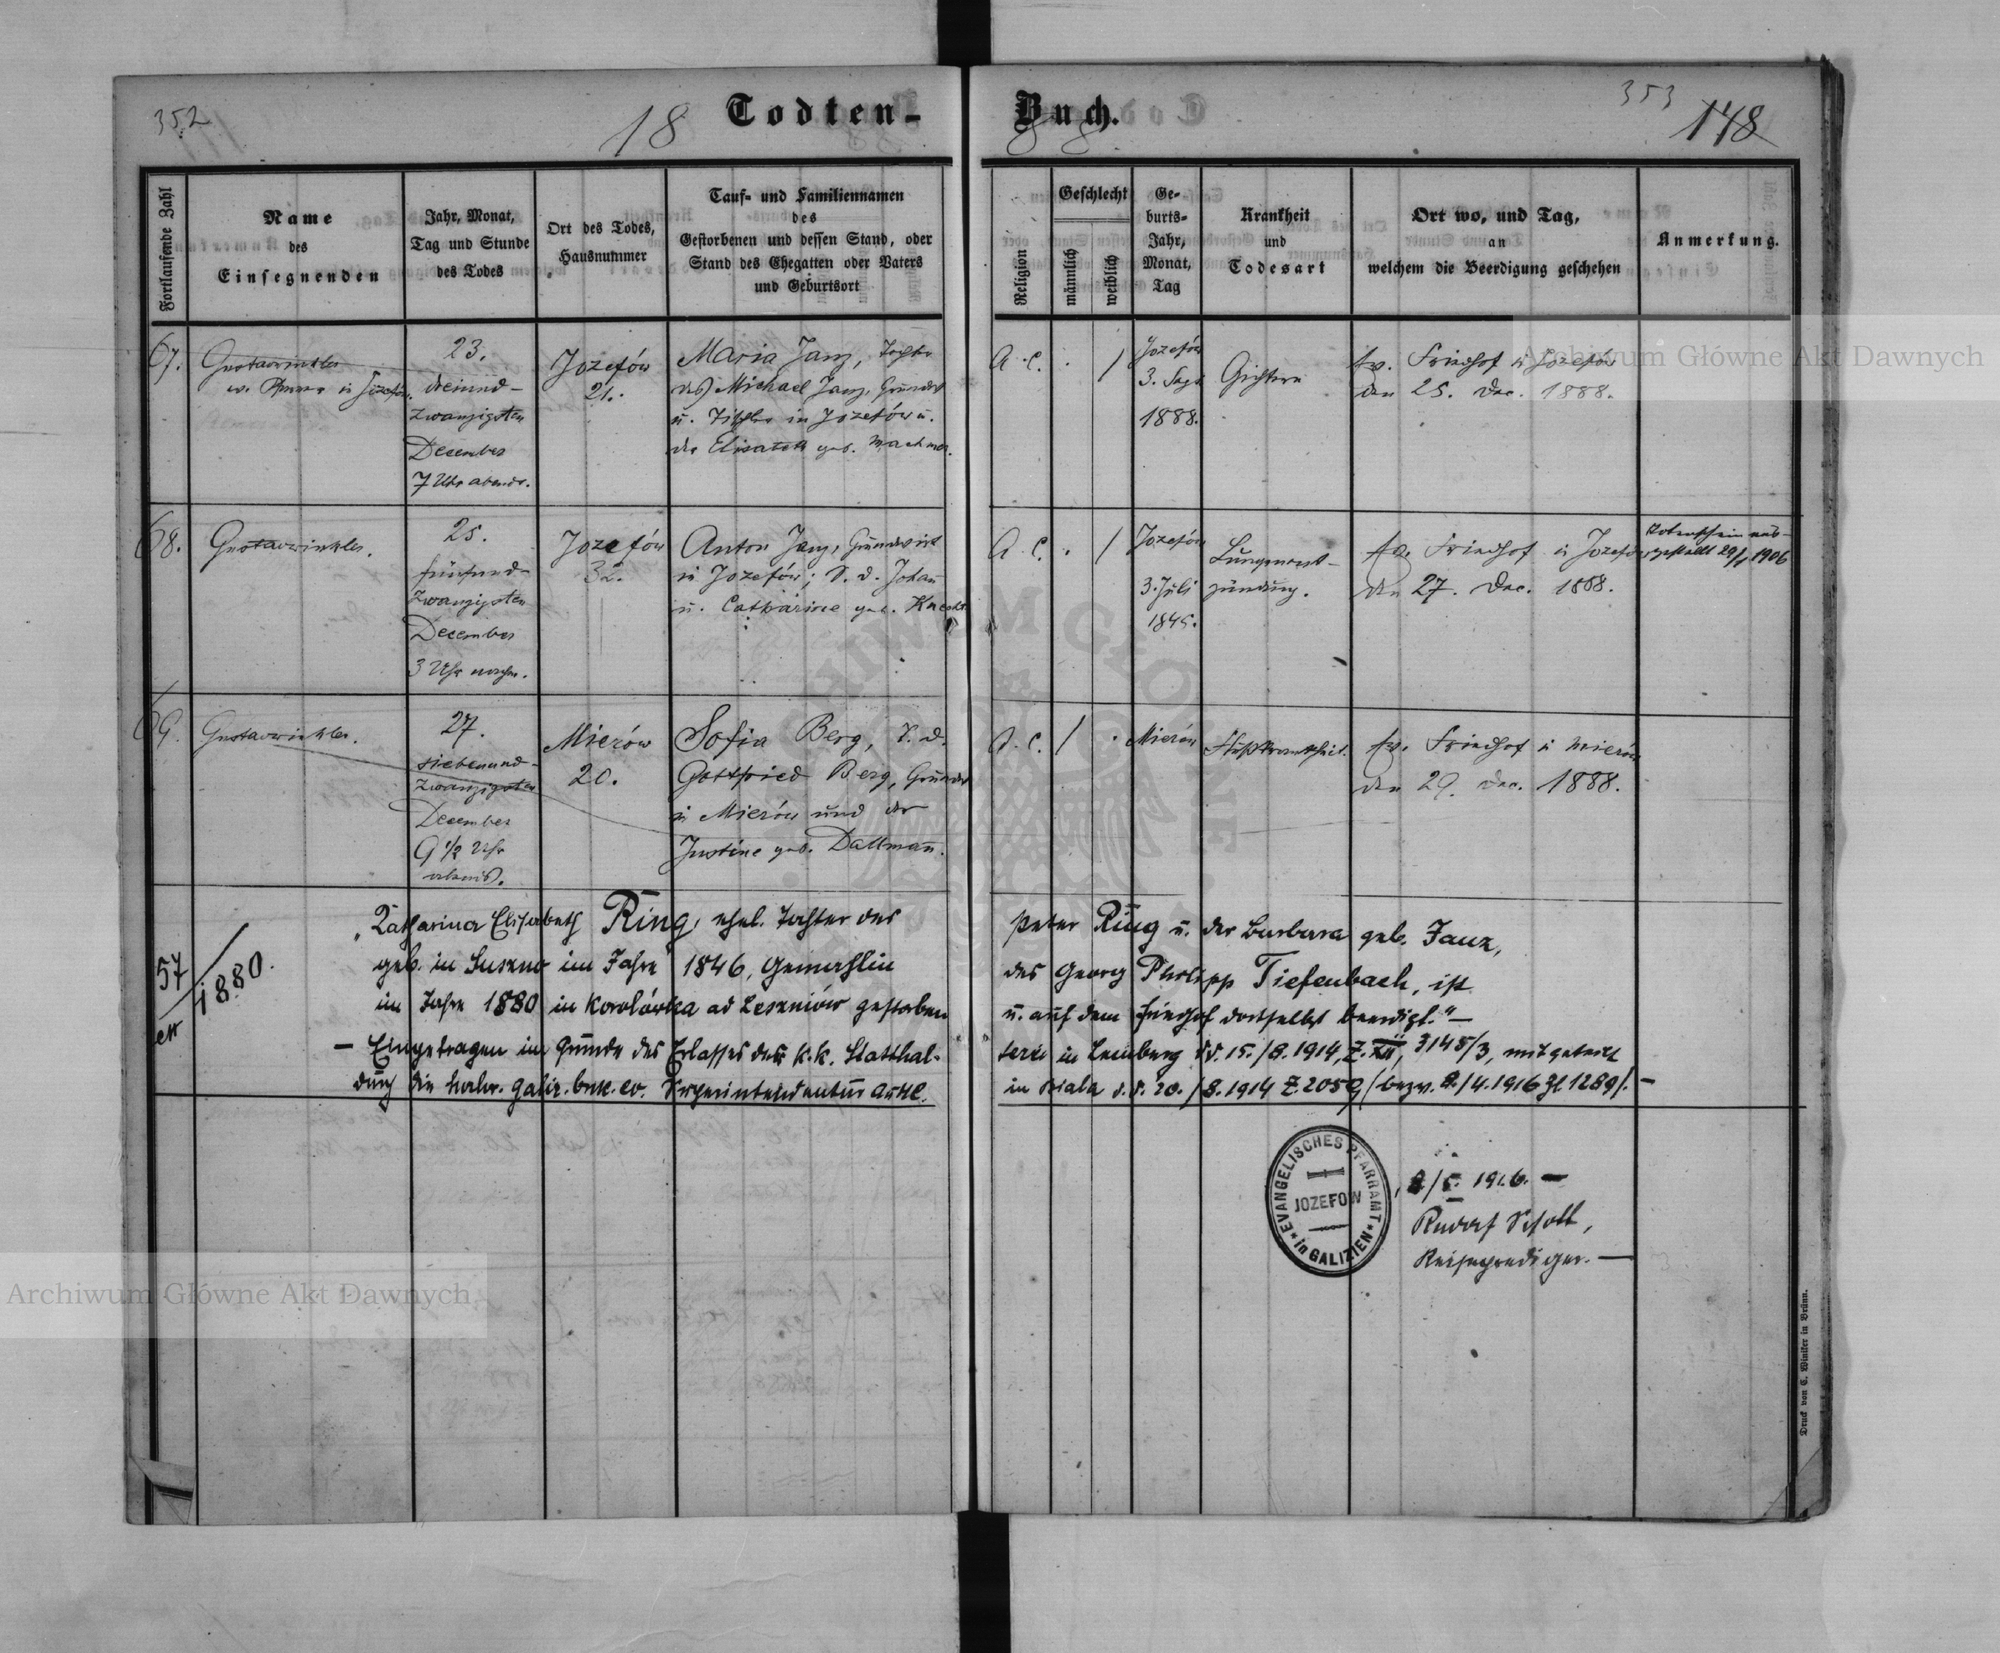 352
18
Todten-
Buch.
88
353
148
Fortlaufende Zahl
Name
des
Einsegnenden
Jahr, Monat,
Tag und Stunde
des Todes
Ort des Todes,
Hausnummer
Tauf- und Familiennamen
des
Gestorbenen und dessen Stand, oder
Stand des Ehegatten oder Vaters
und Geburtsort
Religion
Geschlecht
männlich
weiblich
Ge-
burts-
Jahr,
Monat,
Tag
Krankheit
und
Todesart
Ort wo, und Tag,
an
welchem die Beerdigung geschehen
Anmerkung.
67.
Gustav Winkler
ev. Pfarrer in Józefów.
23.
dreiund-
zwanzigsten
December
7 Uhr abends.
Jozefów
21.
Maria Janz, Tochter
des Michael Janz, Grundw
u. Tischler in Jozefów u.
der Elisabeth geb. Machmer.
A. C.
/
Jozefów
3. Sept
1888.
Gichtern
ev. Friedhof in Jozefów
den 25. Dec. 1888.
68.
Gustav Winkler.
25.
fünfund-
zwanzigsten
December
3 Uhr nachm.
Jozefów
32.
Anton Janz, Grundwirt
in Jozefów; S. d. Johann
u. Catharine geb. Knecht
A. C.
/
Jozefów
3. Juli
1845.
Lungenent-
zündung.
ev. Friedhof in Jozefów
den 27. Dec. 1888.
Totenschein aus-
gestellt 29/1 1906
69.
Gustav Winkler.
27.
siebenund-
zwanzigsten
December
9 1/2 Uhr
abends.
Mierów
20.
Sofia Berg, T. d.
Gottfried Berg, Grundw
in Mierów und der
Justine geb. Dallmann.
A. C.
/
Mierów
ev. Friedhof in Mierów
den 29. Dec. 1888.
57
ex
1880.
Katharina Elisabeth Ring, ehel. Tochter des Peter Ring u. der Barbara geb. Janz,
geb. in Suszno im Jahre 1846, Gemahlin des Georg Philipp Tiefenbach, ist
im Jahre 1880 in Korolówka ad Leszniów gestorben u. auf dem Friedhof dortselbst beerdigt." —
— Eingetragen im Grunde des Erlasses der k.k. Statthal- terei in Lemberg d.d. 15./8. 1914, Z. XII, 3145/3, mitgeteilt
durch die galiz. buk. ev. Superintendentur A. u. H. C. in Biala d.d. 20./8. 1914 Z. 2059 (bezw. 8./4. 1916 Zl. 1289). —
EVANGELISCHES PFARRAMT
JOZEFOW
in GALIZIEN
8./5. 1916. —
Rudolf Scholl,
Reiseprediger. —
Druck von C. Winiker in Brünn.
Archiwum Główne Akt Dawnych
Archiwum Główne Akt Dawnych